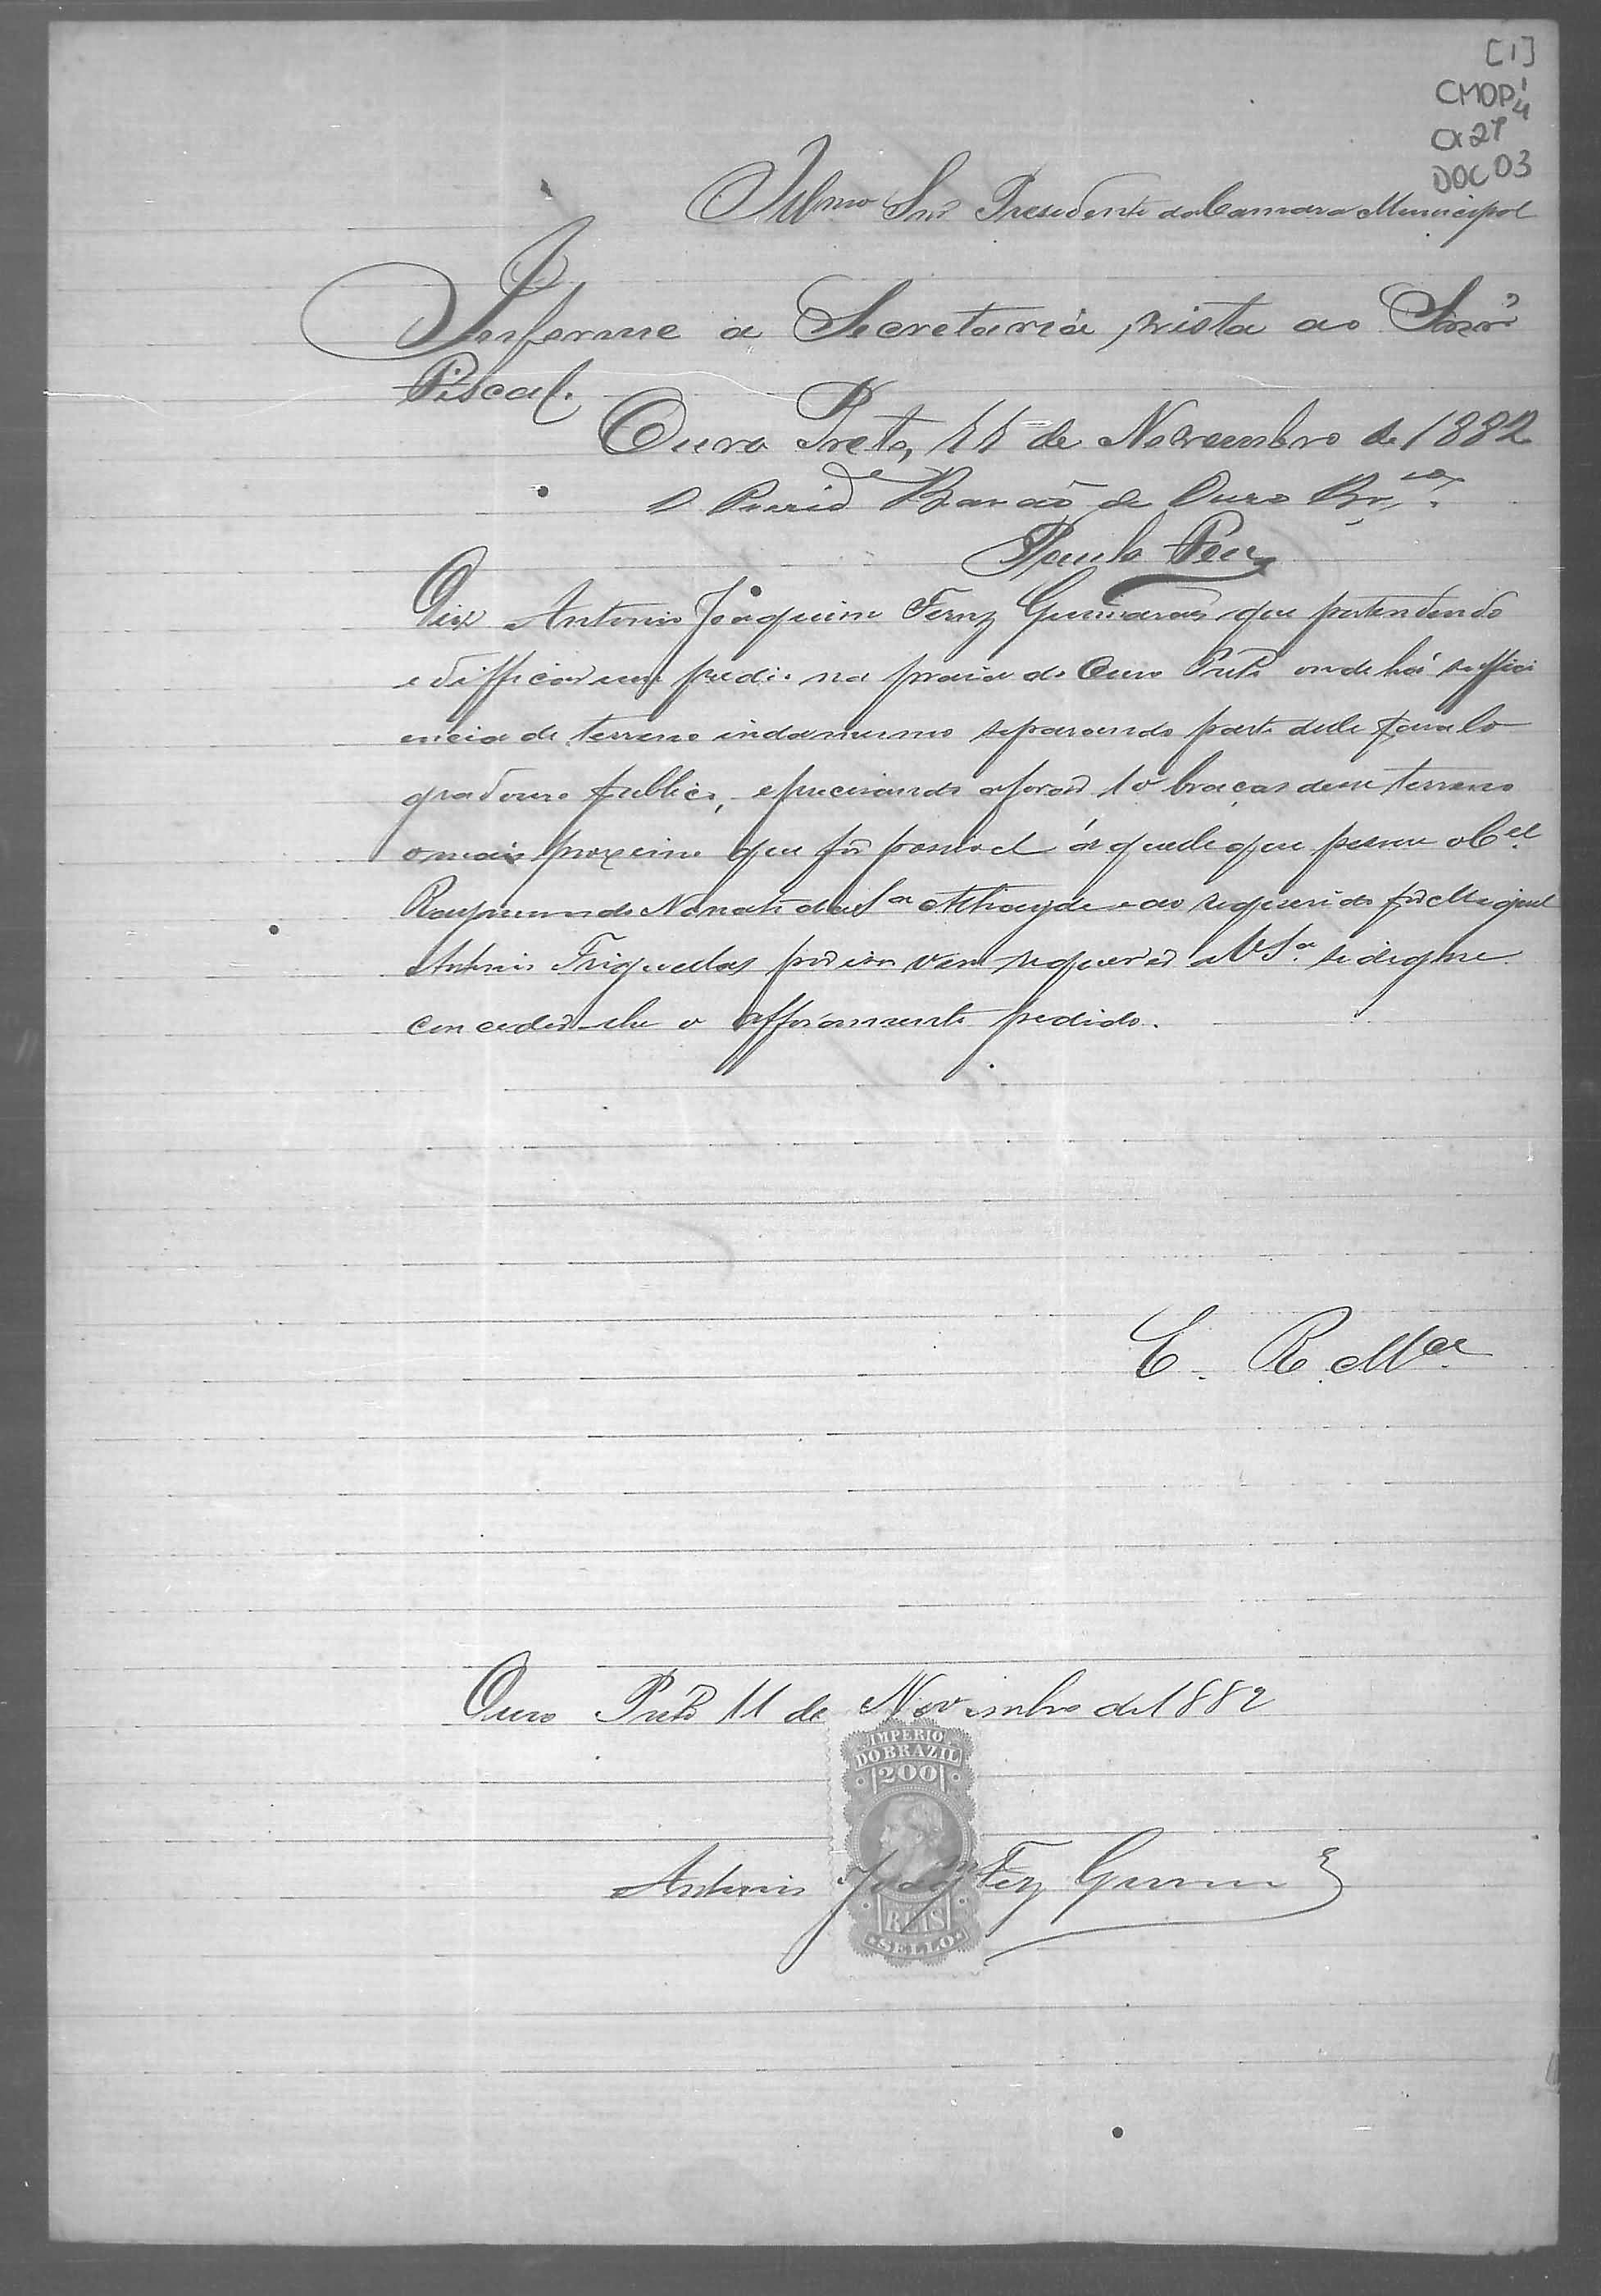 [1]
CMOP 1/4
CX 27
DOC 03
Illmo Snr Presidente da Camara Municipal
Informe a Secretaria, vista ao Snr
Fiscal.
Ouro Preto, 11 de Novembro de 1882
O Presid.e Barão de Ouro Br.co
Paula
Diz Antonio Joaquim Fernz Guimarães que pretendendo
edifficar um predio na praia do Ouro Preto onde há suffici
encia de terreno inda mesmo separando parte delle para lo
gradouro publico, e precisando aforar 10 braças desse terreno
o mais proximo que for possivel áquelle que possue o Cel
Raymundo Nonato da Sa Athayde e ao requerido por Miguel
Antonio Triguellas por isso vem requerer a V Sa se digne
conceder-lhe o afforamento pedido.
E. R. Mce
Ouro Preto 11 de Novembro de 1882
IMPERIO
DO BRAZIL
200
REIS
SELLO
Antonio Joaqm Fez Guimes